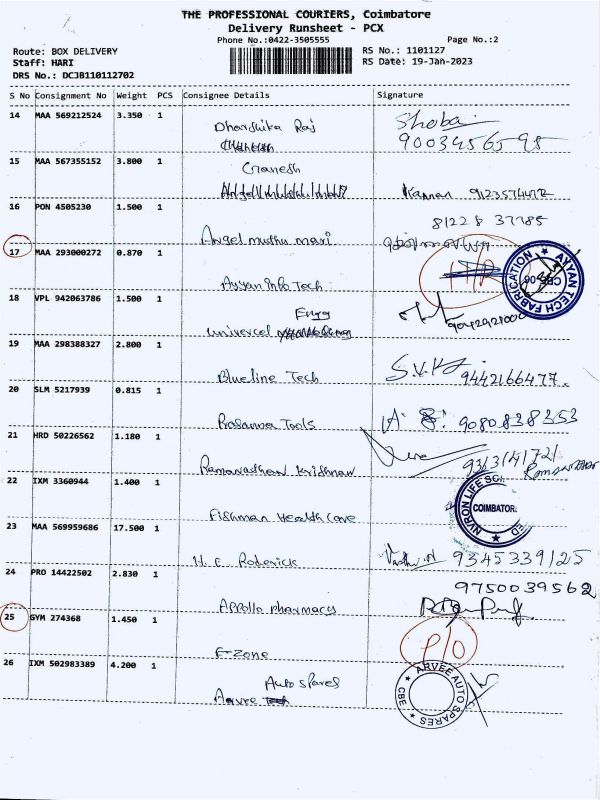 THE PROFESSIONAL COURIERS, Coimbatore
Delivery Runsheet - PCX
Phone No.:0422-3505555 Page No.:2
Route: BOX DELIVERY RS No.: 1101127
Staff: HARI RS Date: 19-Jan-2023
DRS No.: DCJB110112702
S No Consignment No Weight PCS Consignee Details Signature
14 MAA 569212524 3.350 1 Dharshika Raj Shoba
9003456595
15 MAA 567355152 3.800 1 Granesh
Kannan
16 PON 4505230 1.500 1 81228 37785
Angel muthu mari
17 MAA 293000272 0.870 1 Ayyan Info Tech
AYYAN TECH FABRICATION
18 VPL 942063786 1.500 1 Engg
Univercel
19 MAA 298388327 2.800 1 Blueline Tech 9442166477.
20 SLM 5217939 0.815 1 Prasanna Tools 9080838353
21 HRD 50226562 1.180 1 Ramanathan Krishnan 9363141721
22 IXM 3360944 1.400 1 Fishman Health Care
COIMBATOR
23 MAA 569959686 17.500 1 H.C. Roderick 9345339125
24 PRO 14422502 2.830 1 9750039562
Appollo pharmacy
25 GYM 274368 1.450 1 F-Zone P/O
26 IXM 502983389 4.200 1 Auto spares
Aarvee
ARVEE AUTO SPARES
CBE